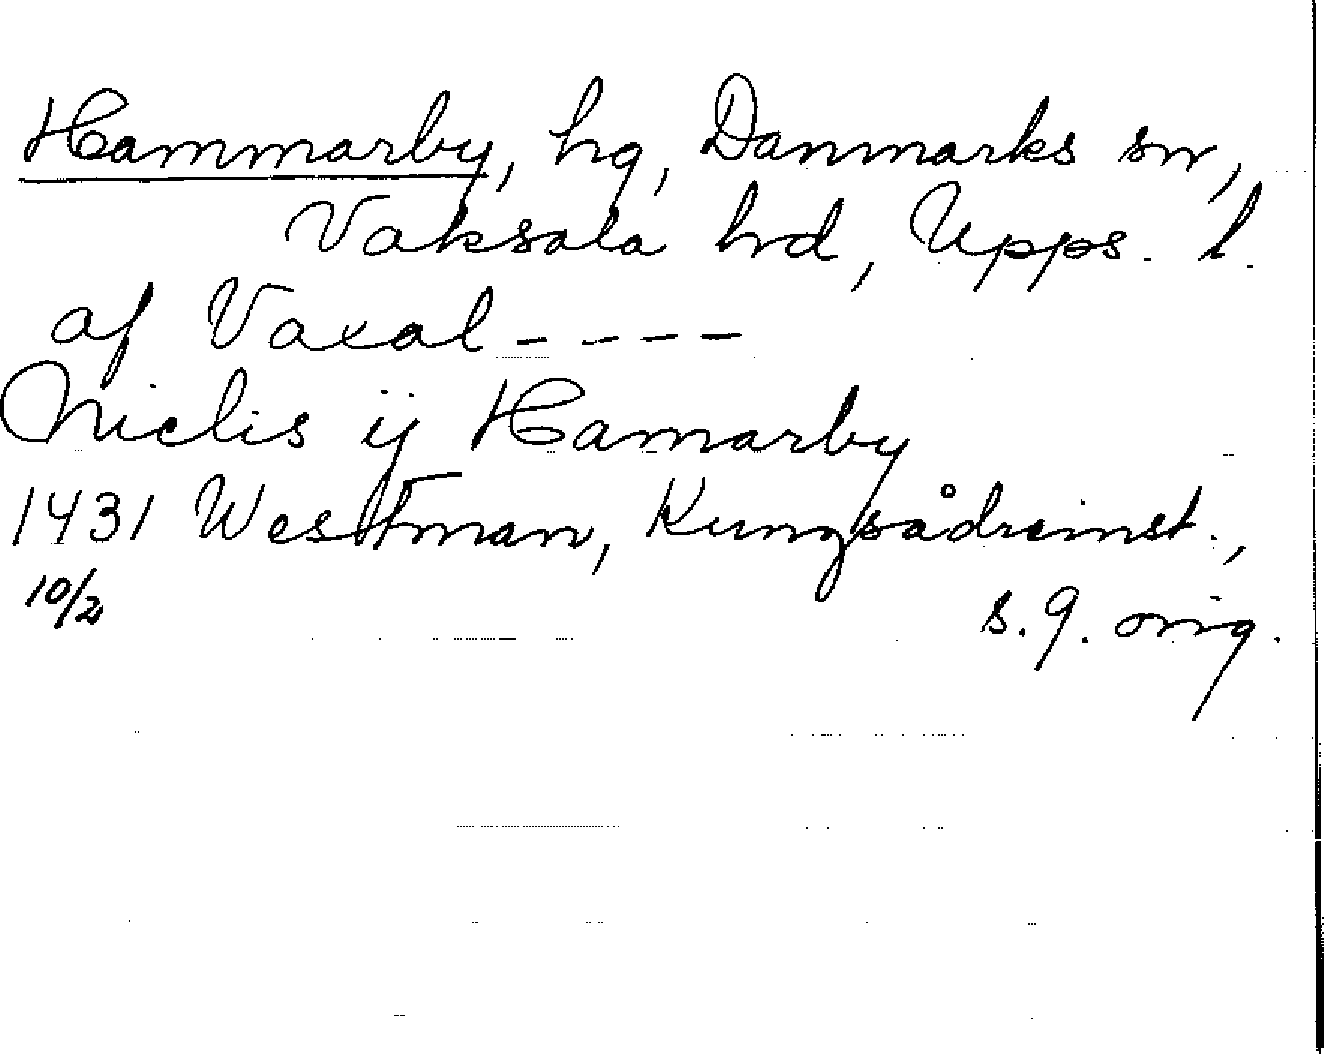 Hammarby, hg, Danmarks sn,
Vaksala hd, Upps. l.
af Vaxal - - - -
Niclis ij Hamarby
1431 Westman, Kungsådreinst.,
10/2 s. 9. orig.